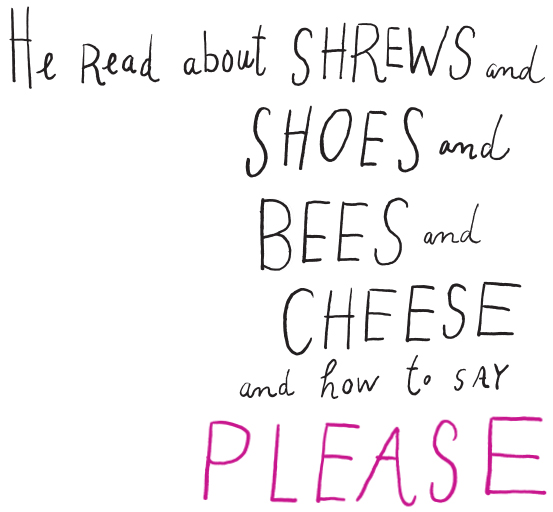 He Read about SHREWS and
SHOES and
BEES and
CHEESE
and how to SAY
PLEASE